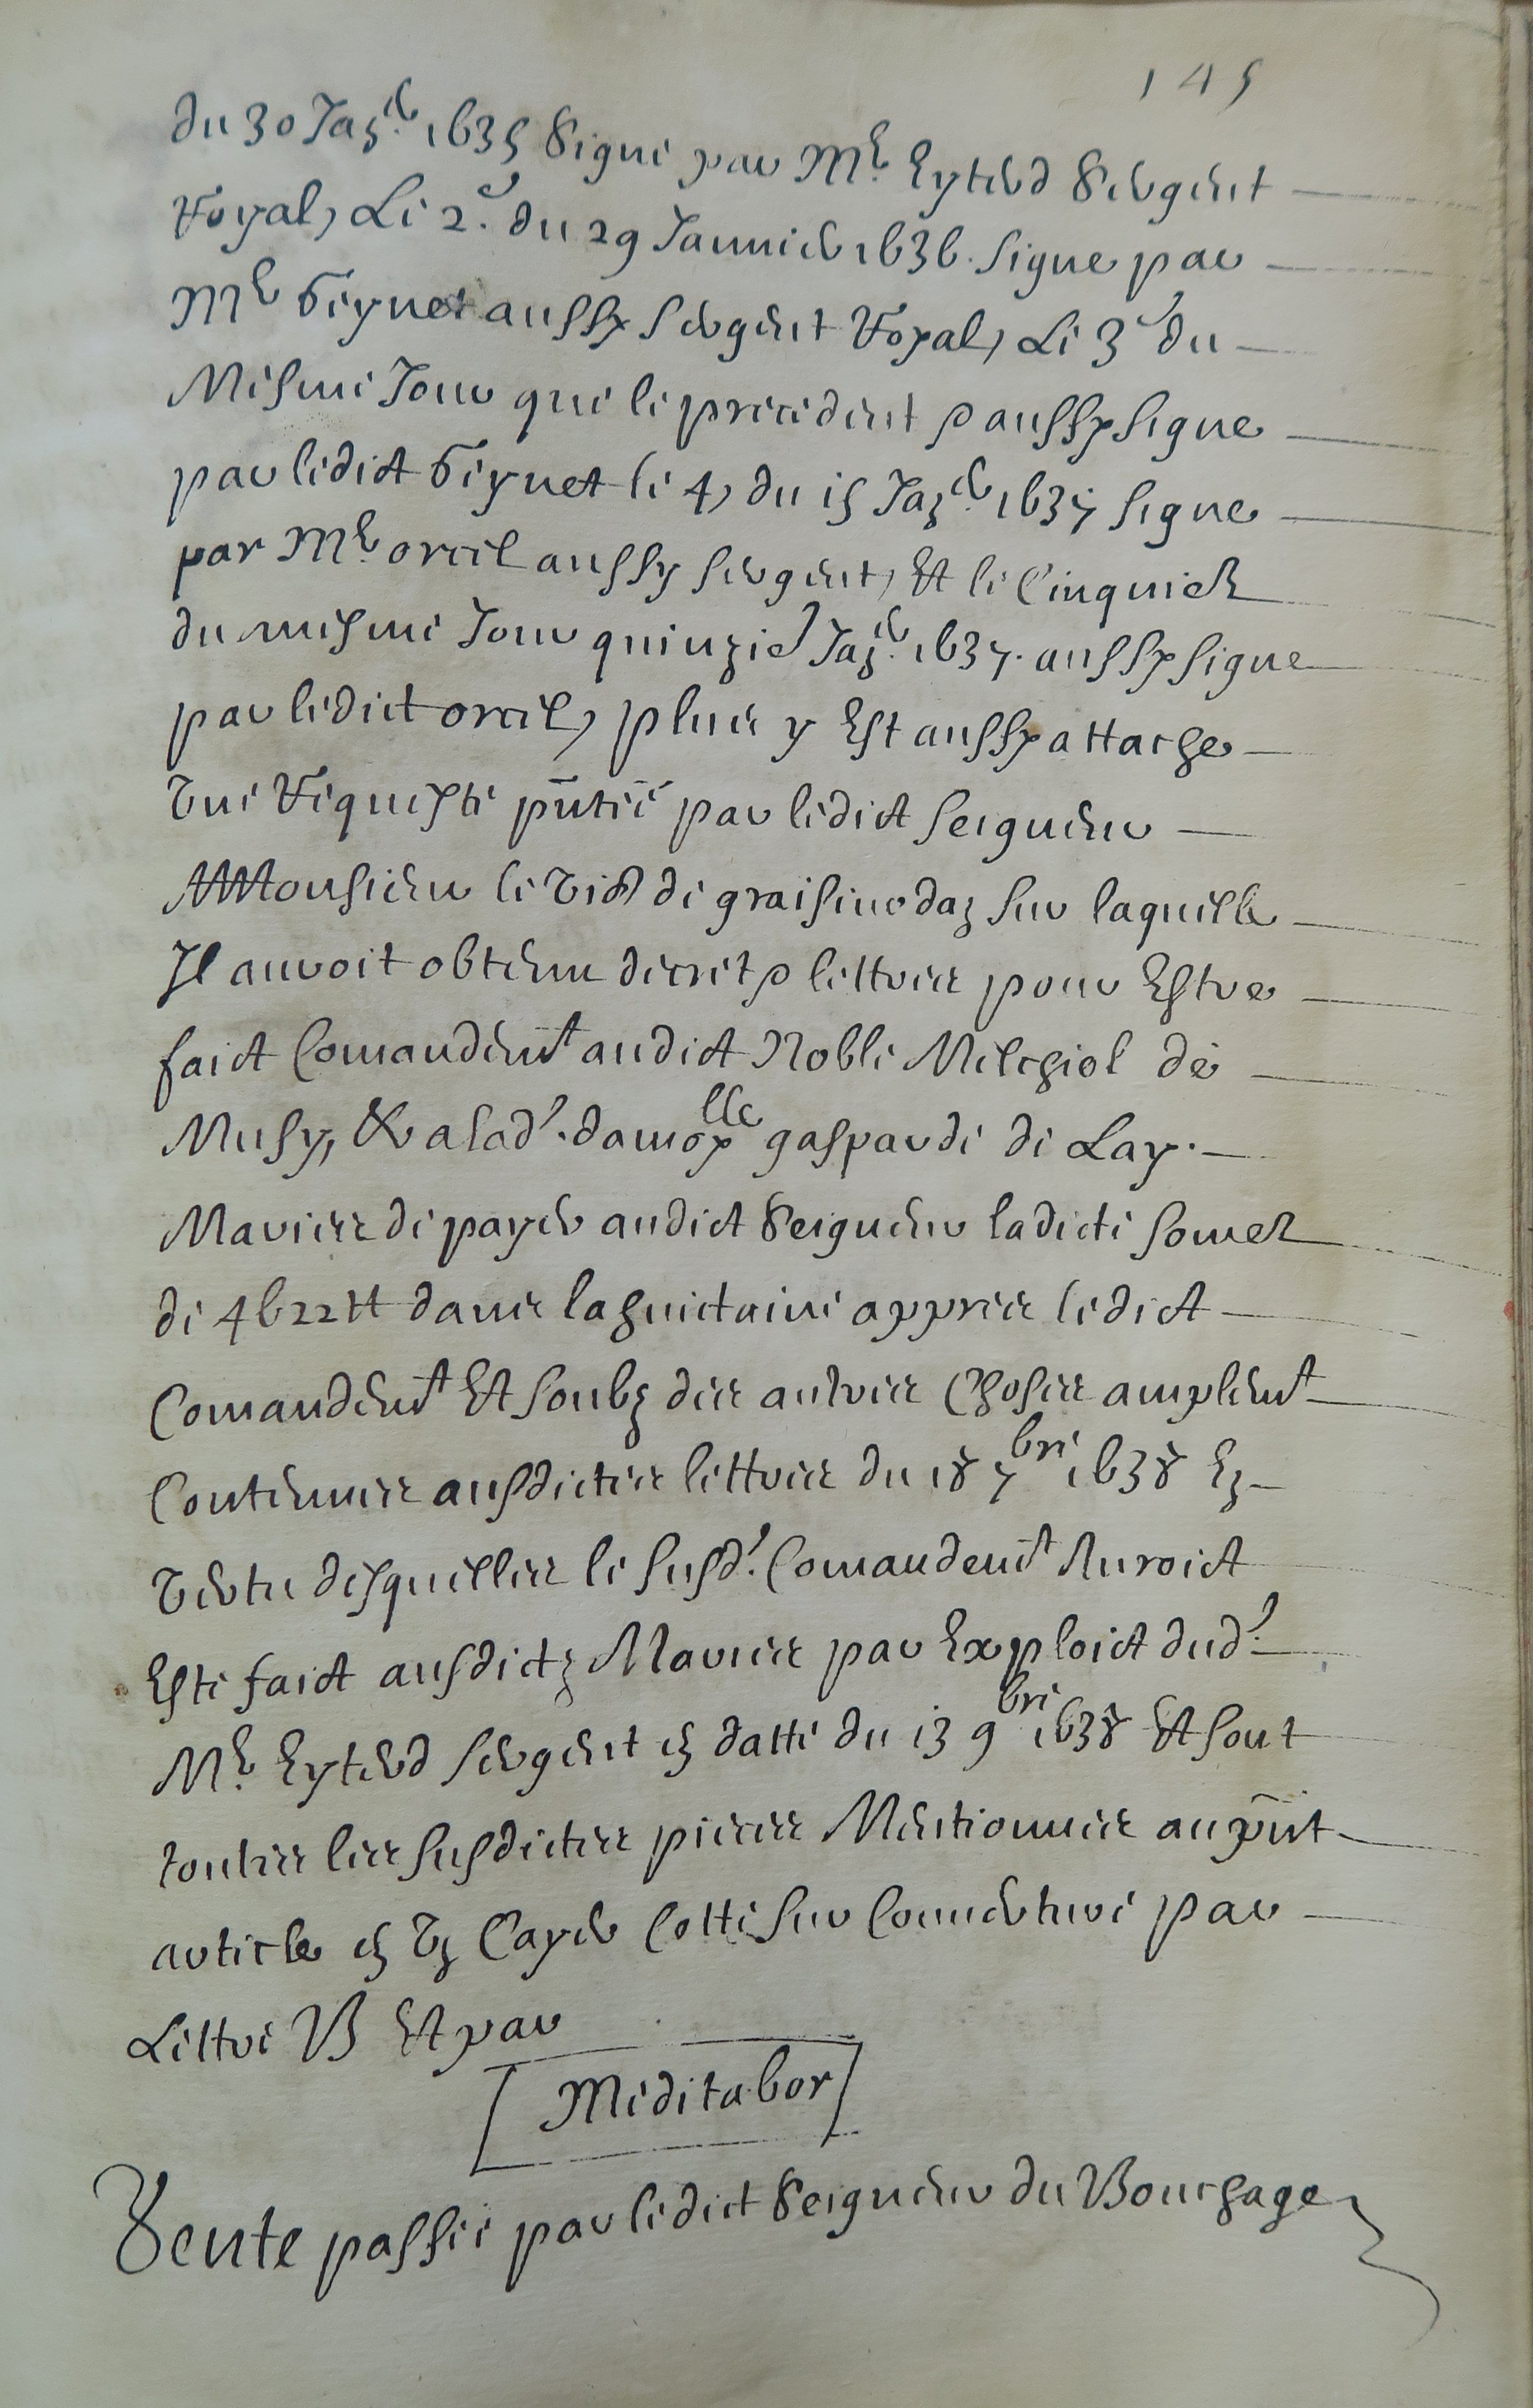 145
du 30 Janer 1635 Signé par Me Eyterd Sergent
Royal, Le 2e. du 29 Januier 1636. signe par
Me Geynet aussy sergent Royal, Le 3e du
Mesme Jour que le precedent & aussy signe
par ledict Geynet le 4, du 15 Janer 1637 signe
par Me orcel aussy sergent, Et le Cinquie
du mesme Jour quinzie Janer 1637. aussy signe
par ledict orcel, plus y Est aussy attache
Vne Requeste pntee par ledict seigneur
A Monsieur le Vi de graisiuodan sur laquelle
Jl auroit obtenu decret & lettres pour Estre
faict Comandemt audict Noble Melchiol de
Musy, & a lad. damoylle gaspard de Lay.
Maries de payer audict Seigneur ladicte some
de 4622 tt dans la huictaine appres ledict
Comandemt Et soubz des autres Choses amplemt
Contenues ausdictes lettres du 18 7bre 1638 En
Vertu desquelles le susd. Comandemt Auroict
Este faict ausdictz Maries par Exploict dud.
Me Eyterd sergent en datte du 13 9bre 1638 Et sont
toutes les susdictes pieces Mentionnes au pnt
article en Vn Cayer Cotte sur Couuerture par
Lettre B Et par
Meditabor
Vente passee par ledict Seigneur du Bouchage